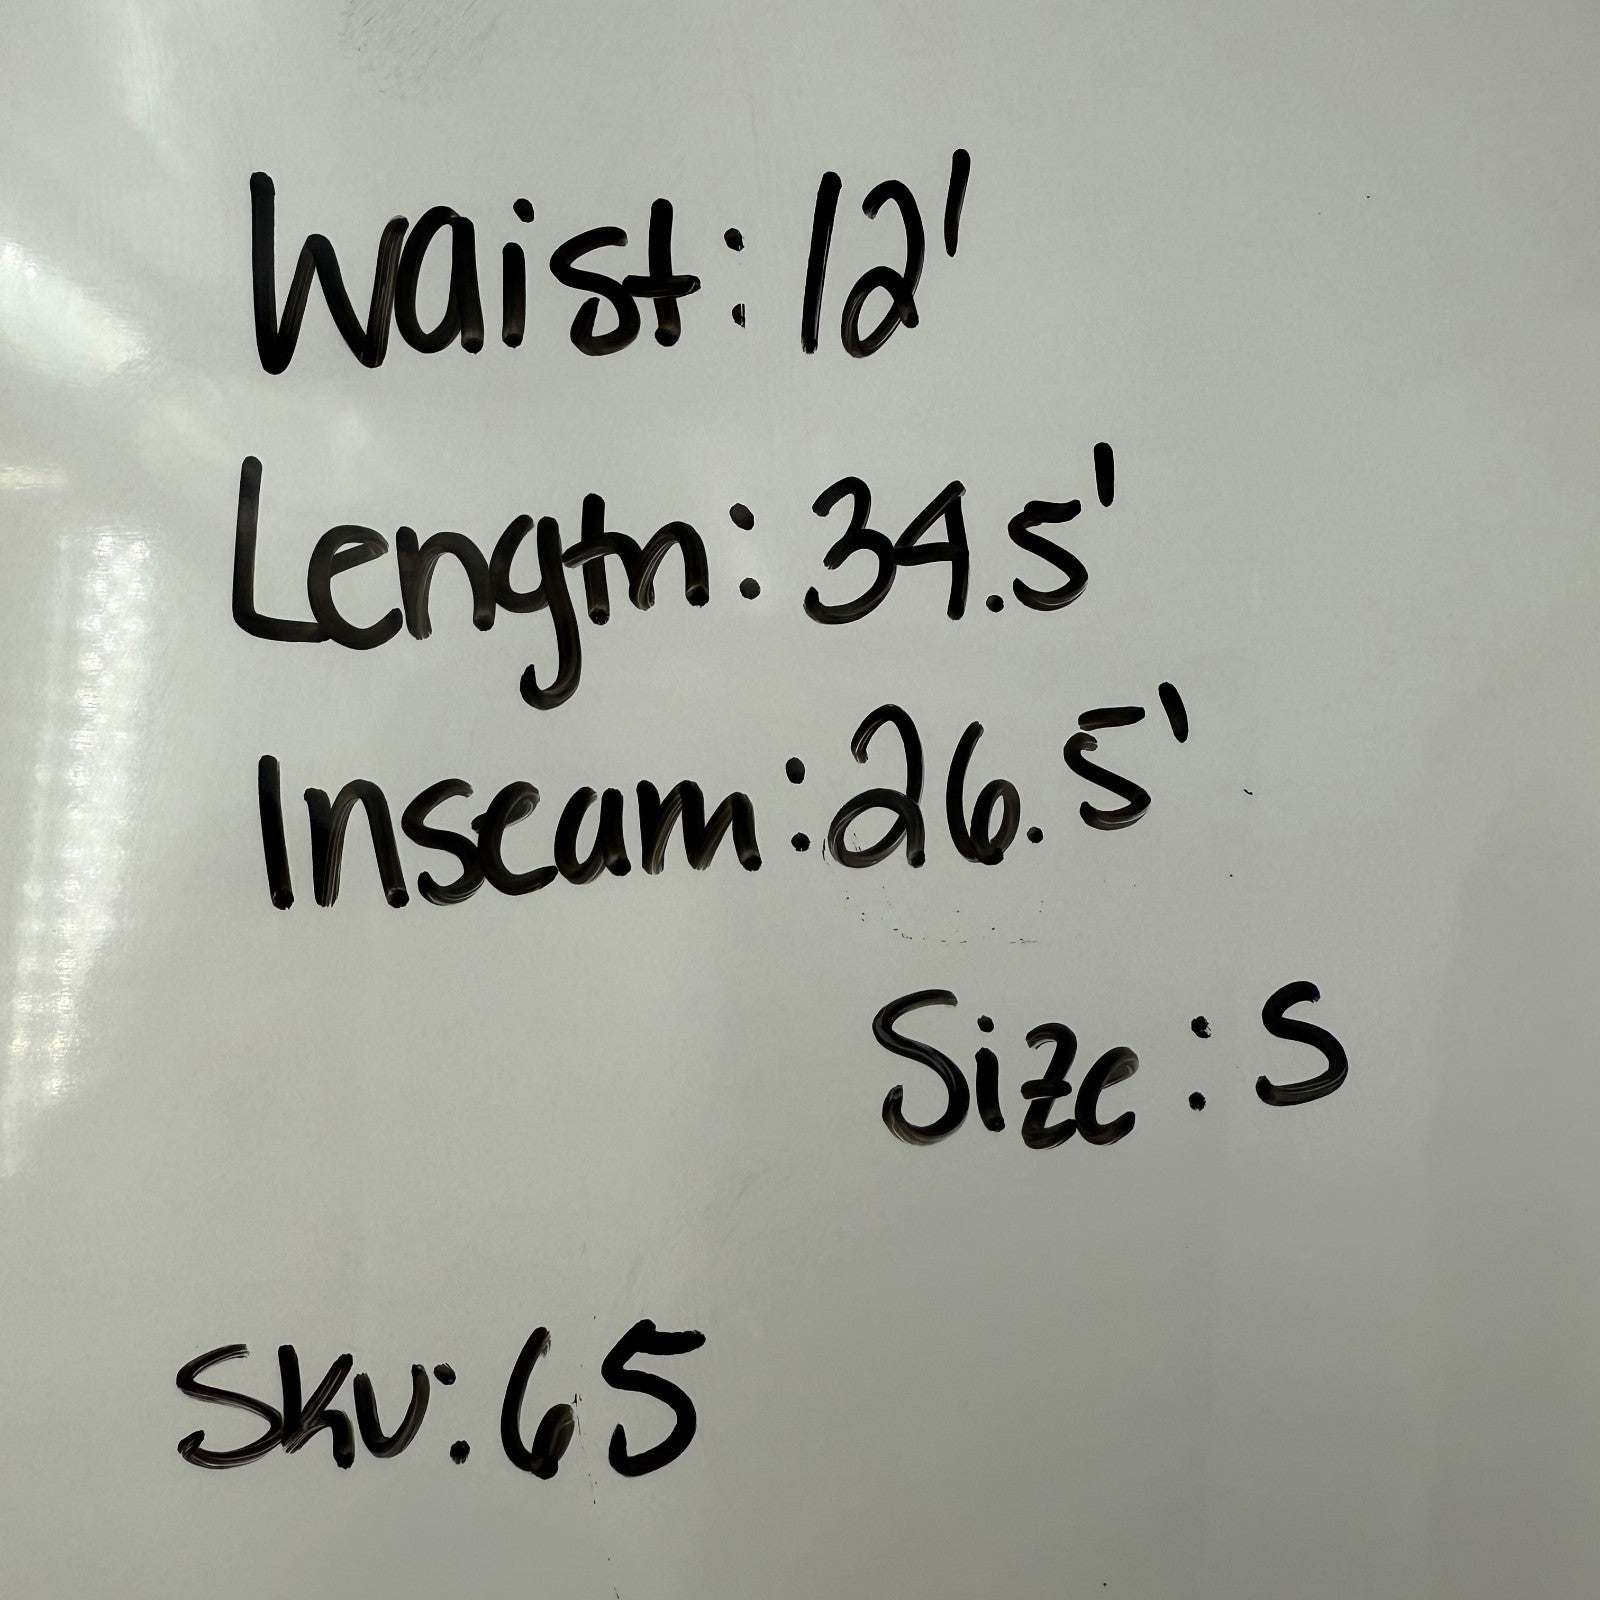 Waist: 12'
Length: 34.5'
Inseam: 26.5'
Size: S
SKU: 65